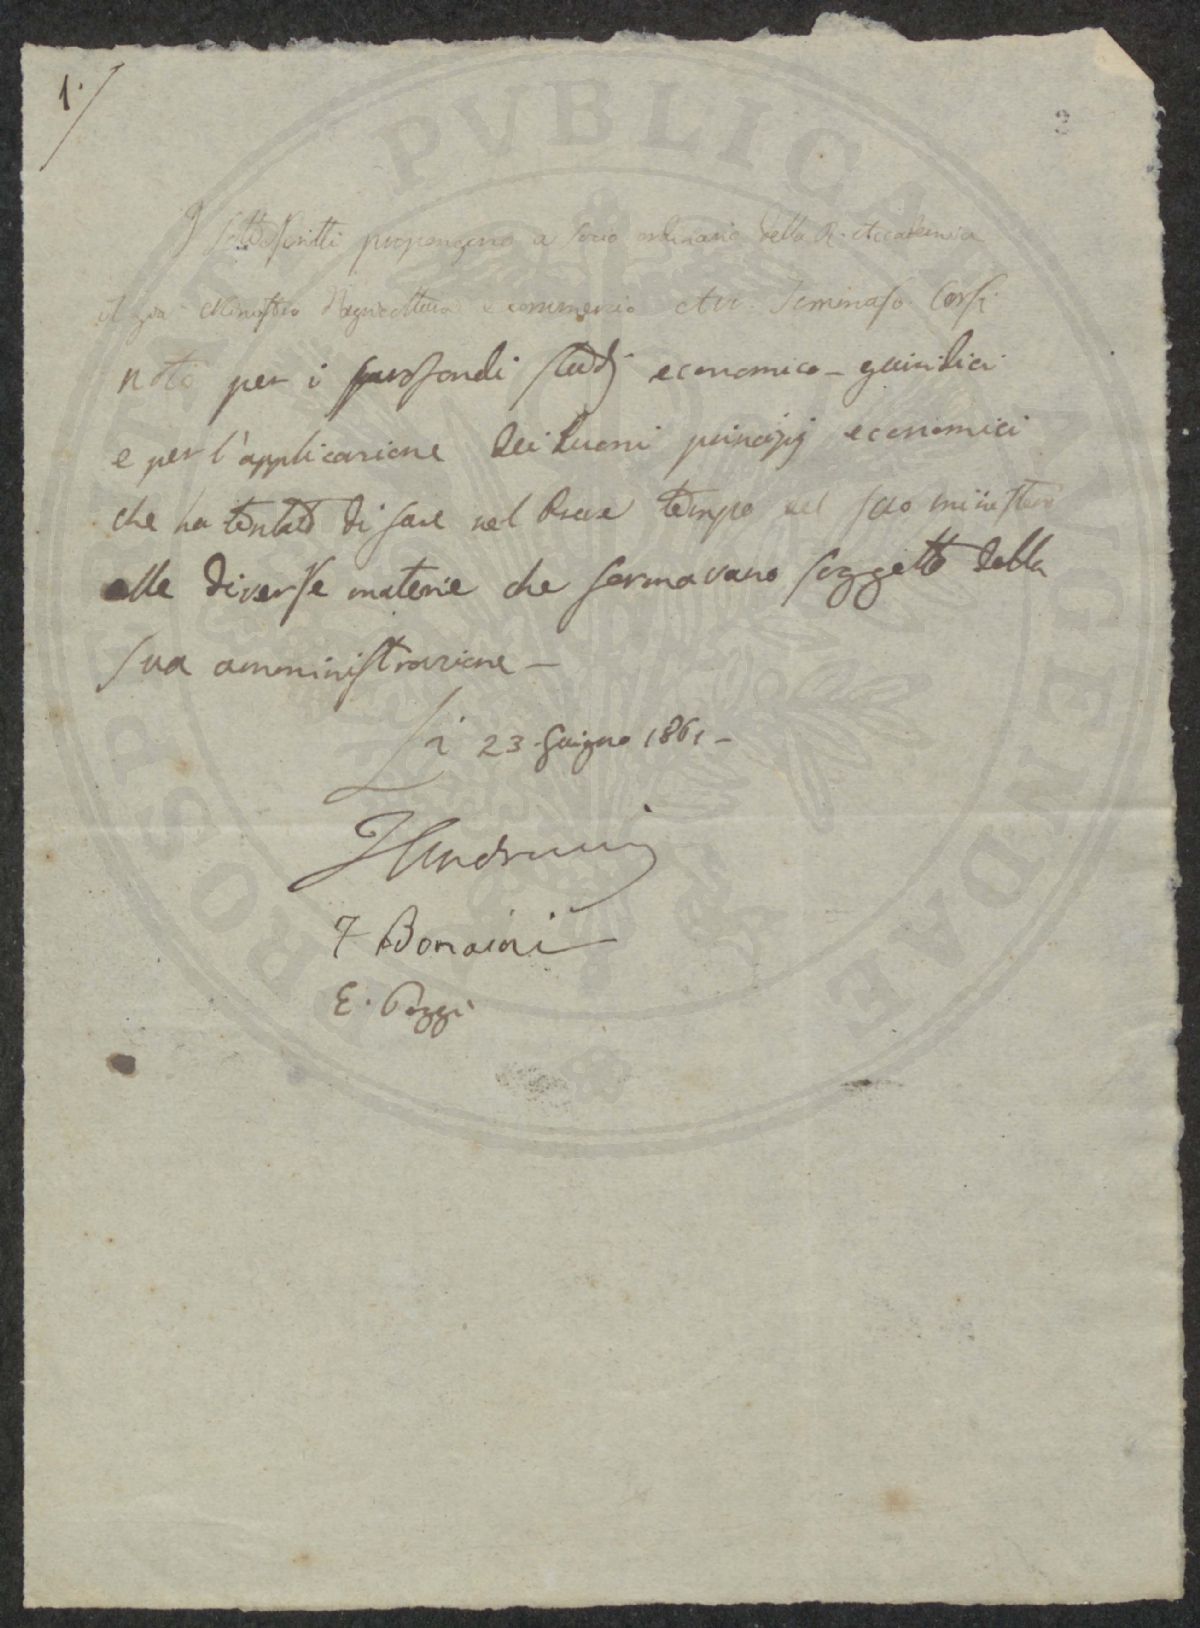 1.
3
I Sottoscritti propongono a Socio ordinario della R. Accademia
il già Ministro d'agricoltura e commercio Avv. Tommaso Corsi
noto per i profondi studj economico-giuridici
e per l'applicazione dei buoni principj economici
che ha tentato di fare nel breve tempo del suo ministero
alle diverse materie che formavano soggetto della
sua amministrazione -
Li 23 Giugno 1861 -
F Bonaini
E. Poggi
PROSPERITATI PVBLICAE AVGENDAE